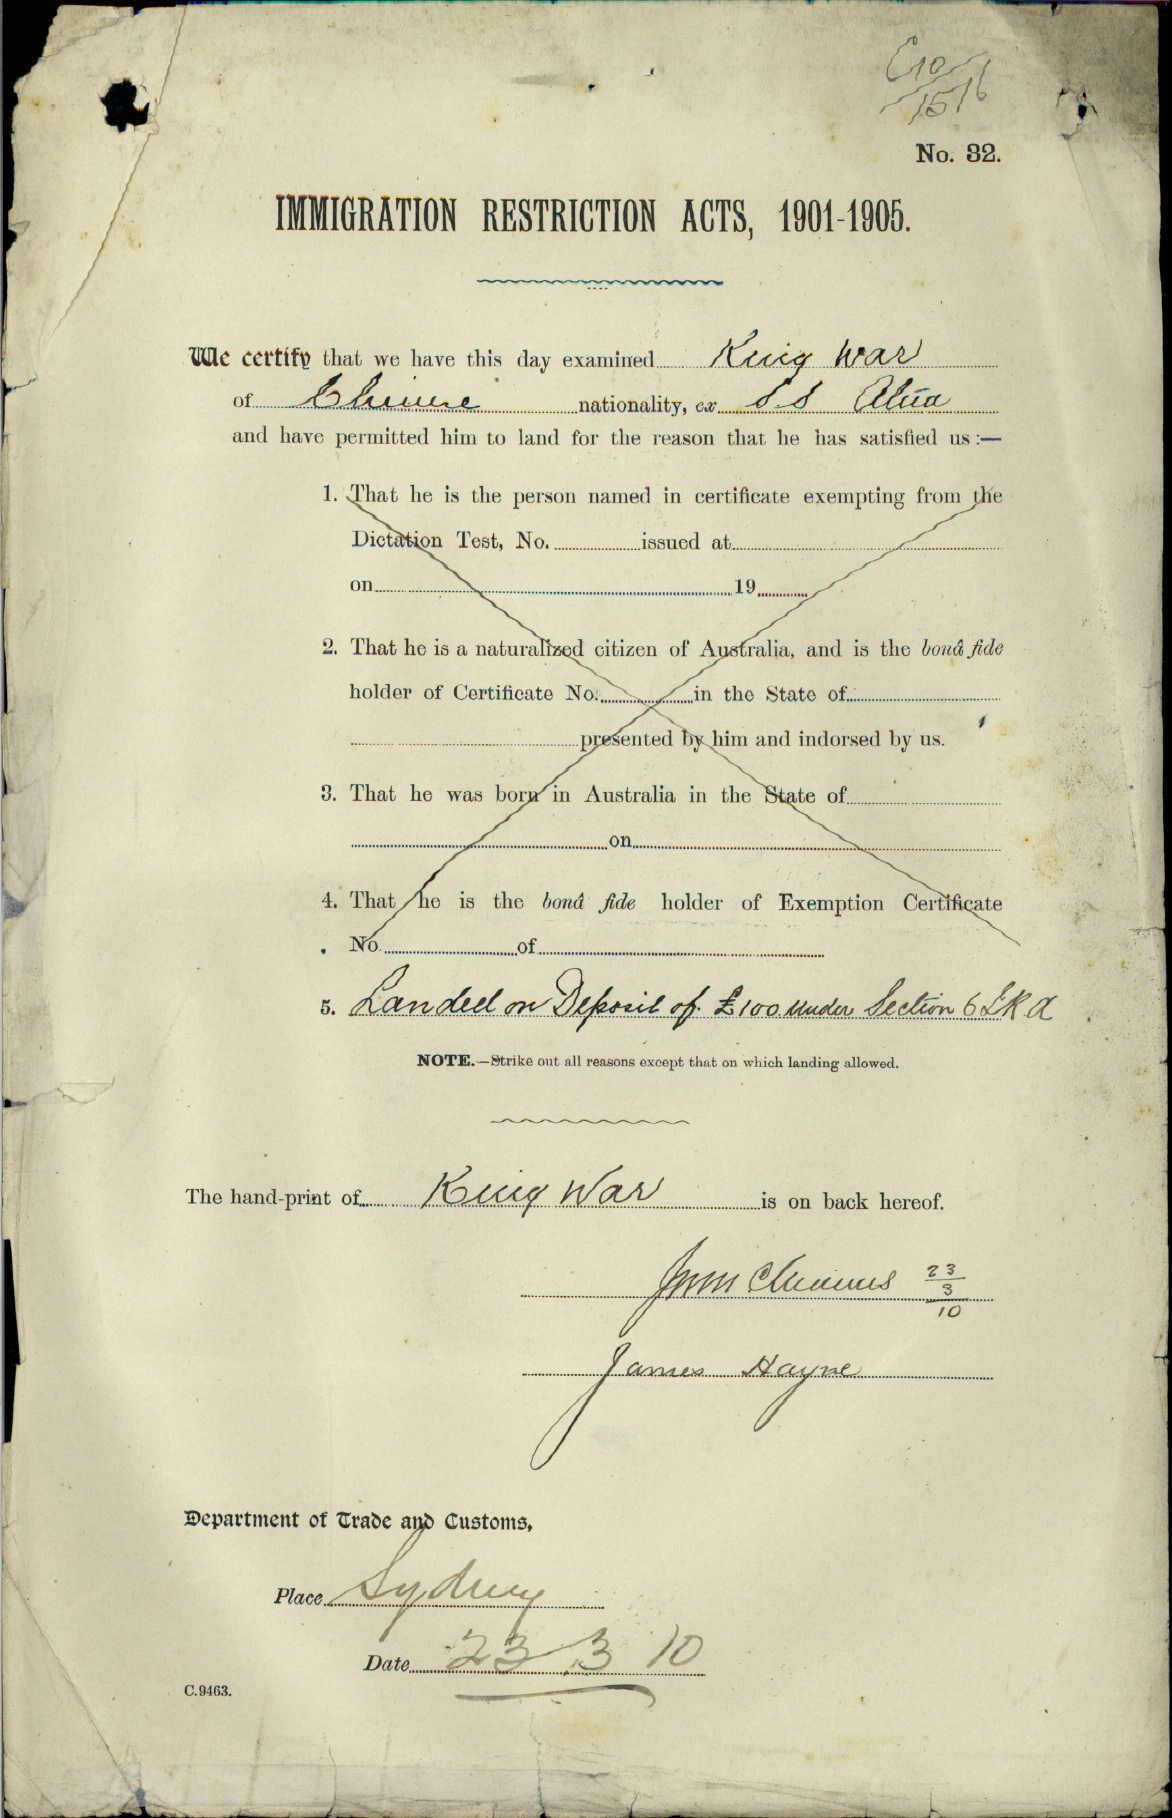 C10
1516
No. 32.
IMMIGRATION RESTRICTION ACTS, 1901-1905.
We certify that we have this day examined King War
of Chinese nationality, ex S S Atua
and have permitted him to land for the reason that he has satisfied us :—
1. That he is the person named in certificate exempting from the
Dictation Test, No. issued at
on 19
2. That he is a naturalized citizen of Australia, and is the bonâ fide
holder of Certificate No. in the State of
presented by him and indorsed by us.
3. That he was born in Australia in the State of
on
4. That he is the bonâ fide holder of Exemption Certificate
No. of
5. Landed on Deposit of £100 under Section 6 I R A
NOTE.—Strike out all reasons except that on which landing allowed.
The hand-print of King War is on back hereof.
23
3
10
James Hayne
Department of Trade and Customs,
Place Sydney
Date 23 3 10
C.9463.